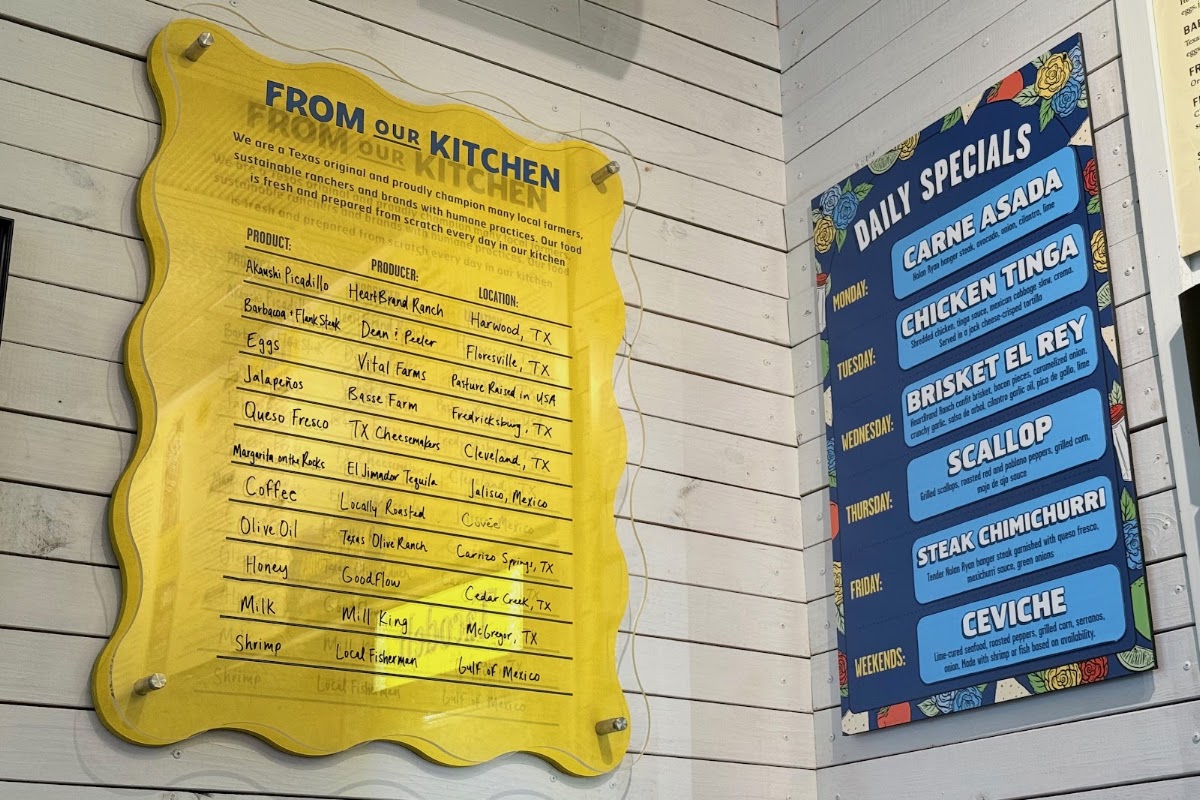 FROM OUR KITCHEN
We are a Texas original and proudly champion many local farmers,
sustainable ranchers and brands with humane practices. Our food
is fresh and prepared from scratch every day in our kitchen
PRODUCT: PRODUCER: LOCATION:
Akaushi Picadillo HeartBrand Ranch Harwood, TX
Barbacoa + Flank Steak Dean & Peeler Floresville, TX
Eggs Vital Farms Pasture Raised in USA
Jalapeños Basse Farm Fredricksburg, TX
Queso Fresco TX Cheesemakers Cleveland, TX
Margarita on the Rocks El Jimador Tequila Jalisco, Mexico
Coffee Locally Roasted Cuvée
Olive Oil Texas Olive Ranch Carrizo Springs, TX
Honey Goodflow Cedar Creek, TX
Milk Mill King McGregor, TX
Shrimp Local Fisherman Gulf of Mexico
DAILY SPECIALS
MONDAY: CARNE ASADA
Nolan Ryan hanger steak, avocado, onion, cilantro, lime
TUESDAY: CHICKEN TINGA
Shredded chicken, tinga sauce, mexican cabbage slaw, crema.
Served in a jack cheese-crisped tortilla
WEDNESDAY: BRISKET EL REY
HeartBrand Ranch confit brisket, bacon pieces, caramelized onion,
crunchy garlic, salsa de arbol, cilantro garlic oil, pico de gallo, lime
THURSDAY: SCALLOP
Grilled scallops, roasted red and poblano peppers, grilled corn,
mojo de ajo sauce
FRIDAY: STEAK CHIMICHURRI
Tender Nolan Ryan hanger steak garnished with queso fresco,
mexichurri sauce, green onions
WEEKENDS: CEVICHE
Lime-cured seafood, roasted peppers, grilled corn, serranos,
onion. Made with shrimp or fish based on availability.